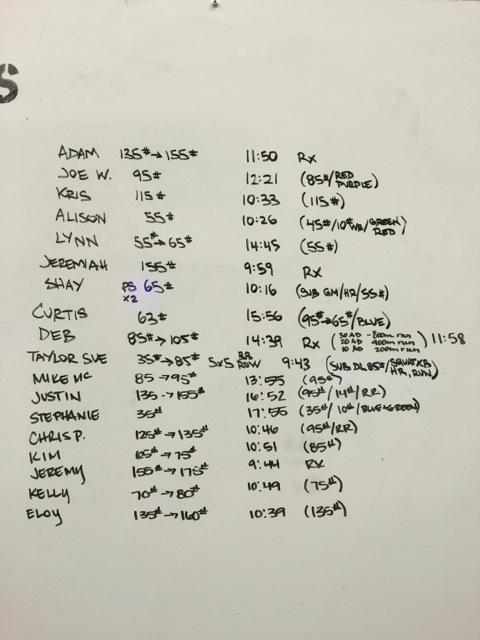 S
ADAM 135# → 155# 11:50 Rx
JOE W. 95# 12:21 (85#/RED PURPLE)
KRIS 115# 10:33 (115#)
ALISON 55# 10:26 (45#/10# WB/GREEN RED)
LYNN 55# → 65# 14:45 (55#)
JEREMIAH 155# 9:59 Rx
SHAY PS X2 65# 10:16 (SUB GM/HR/55#)
CURTIS 63# 15:56 (95# → 65#/BLUE)
DEB 85# → 105# 14:39 Rx (30 AD - 800m run 20 AD 400m run 10 AD 200m run) 11:58
TAYLOR SUE 35# → 85# 5x5 RR ROW 9:43 (SUB DL 85#/SQUAT KB, HR, RUN)
MIKE MC 85 → 95# 13:55 (95#)
JUSTIN 135 → 155# 16:52 (95#/14#/RR)
STEPHANIE 35# 17:55 (35#/10#/BLUE+GREEN)
CHRIS P. 125# → 135# 10:46 (95#/RR)
KIM 65# → 75# 10:51 (85#)
JEREMY 155# → 175# 9:44 RX
KELLY 70# → 80# 10:49 (75#)
ELOY 135# → 160# 10:39 (135#)